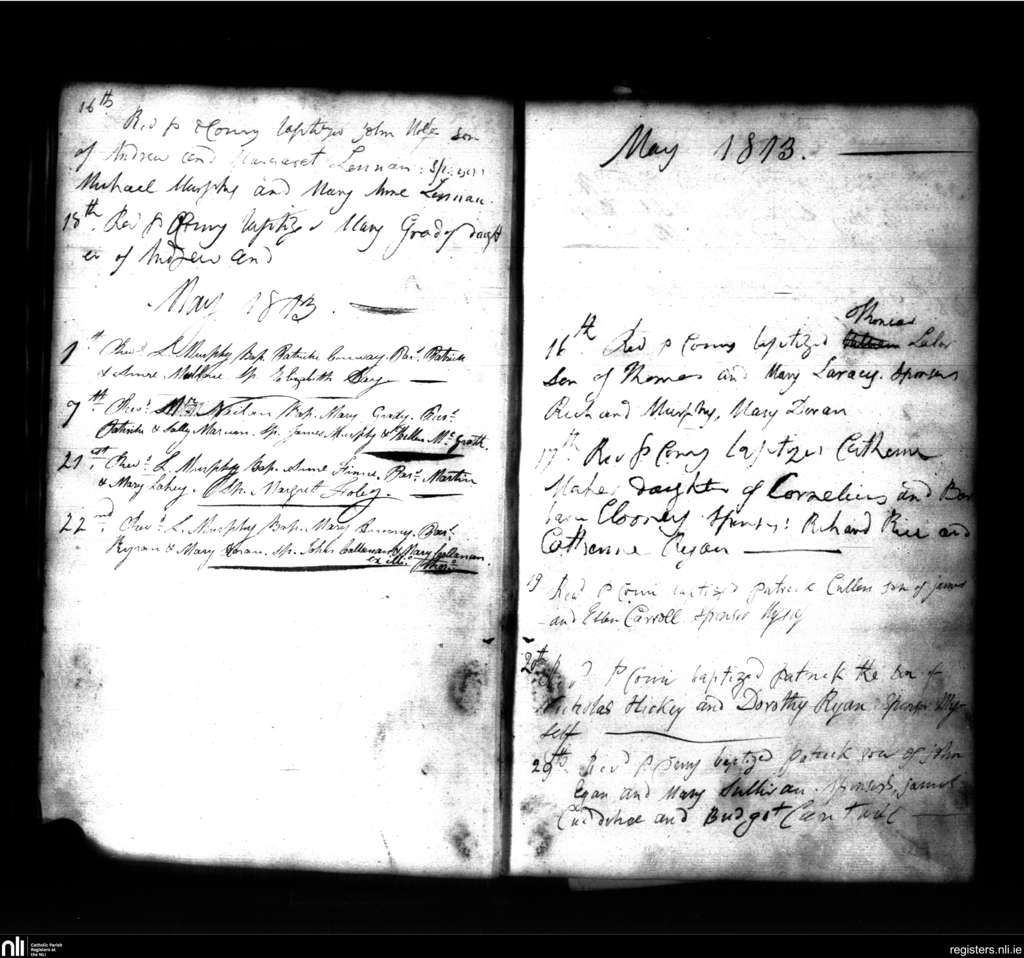 16th
Revd P Conry baptized John son
of Andrew and Margaret Lennan: Sponsors
Michael Murphy and Mary Anne Lennan.
18th Revd P Conry baptized Mary Grady daught
er of Andrew and
May 1813.
1st L. Murphy Bap. Patrick Conway. Par. Patrick
& Anne Sp. Elizabeth Day
7th Nolan Bap. Mary Grady. Par.
Patrick & Sally Sp. James Murphy & McGrath.
21st L. Murphy Bap. Anne Par. Martin
& Mary Lahey. Sp. Margret
22nd L. Murphy Bap. Mary Par.
& Mary Sp. John Callanan & Mary Callanan.
May 1813.
Thomas
16th Revd P Conry baptized Lalor
Son of Thomas and Mary Laracy. Sponsors
Richard Murphy, Mary Doran
17th Revd P Conry baptized Catherine
Maher daughter of Cornelius and Bar
bara Clooney Sponsors: Richard Rice and
Catherine Ryan
19 Revd P baptized Patrick Cullen son of James
and Ellen Carroll Sponsor Myself
20th Revd P baptized Patrick the son of
Nicholas Hickey and Dorothy Ryan Sponsor My
self
29th Revd P baptized Patrick son of John
Egan and Mary Sullivan. Sponsors, James
and Bridget Cantwell
nli
Catholic Parish
Registers at
the NLI
registers.nli.ie